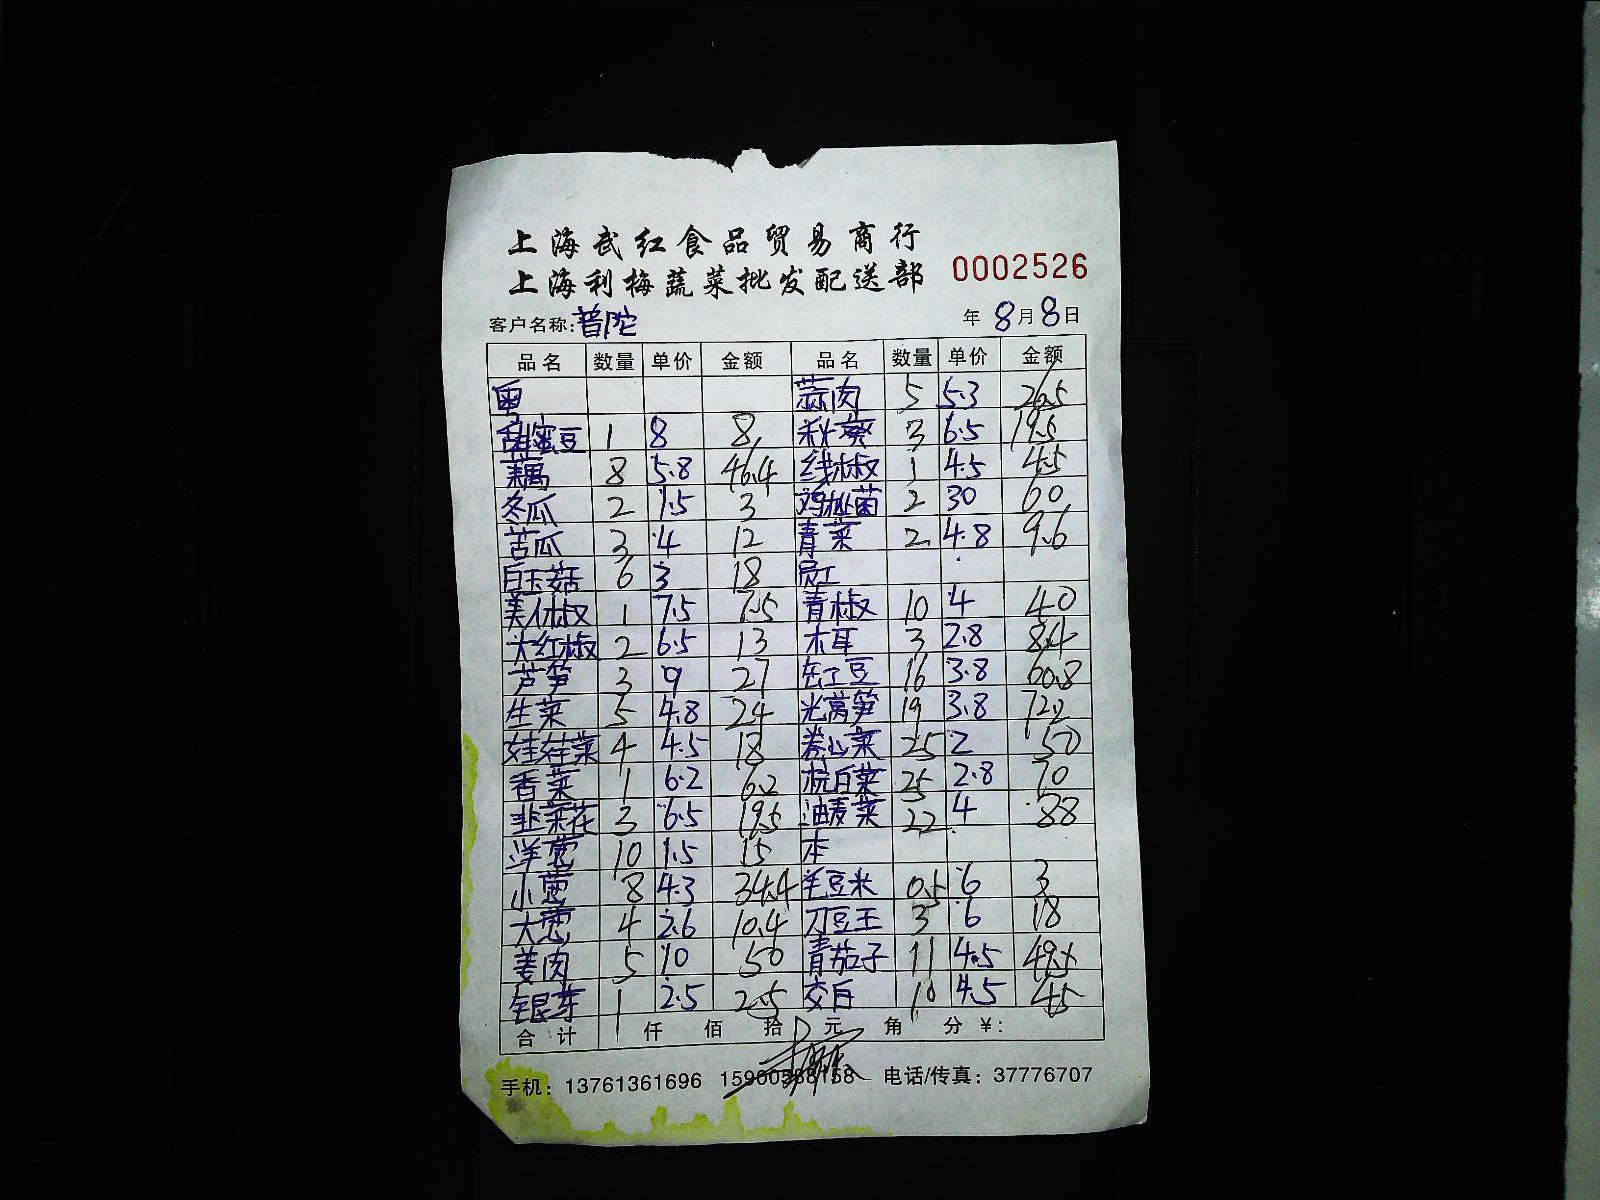 上海武红食品贸易商行
上海利梅蔬菜批发配送部 0002526
客户名称:普陀 年 8月8日
品名 数量 单价 金额 品名 数量 单价 金额
粤 蒜肉 5 5.3 26.5
甜蜜豆 1 8 8 秋葵 3 6.5 19.5
藕 8 5.8 46.4 线椒 1 4.5 4.5
冬瓜 2 1.5 3 鸡枞菌 2 30 60
苦瓜 3 4 12 青菜 2 4.8 9.6
白玉菇 6 3 18 员工
美人椒 1 7.5 7.5 青椒 10 4 40
大红椒 2 6.5 13 木耳 3 2.8 8.4
芦笋 3 9 27 豇豆 16 3.8 60.8
生菜 5 4.8 24 光莴笋 19 3.8 72.2
娃娃菜 4 4.5 18 卷心菜 25 2 50
香菜 1 6.2 6.2 杭白菜 25 2.8 70
韭菜花 3 6.5 19.5 油麦菜 22 4 88
洋葱 10 1.5 15 本
小葱 8 4.3 34.4 毛豆米 0.5 6 3
大葱 4 2.6 10.4 刀豆王 3 6 18
姜肉 5 10 50 青茄子 11 4.5 49.5
银芽 1 2.5 2.5 交白 10 4.5 45
合计 仟 佰 拾 元 角 分 ¥:
手机: 13761361696 158 电话/传真: 37776707